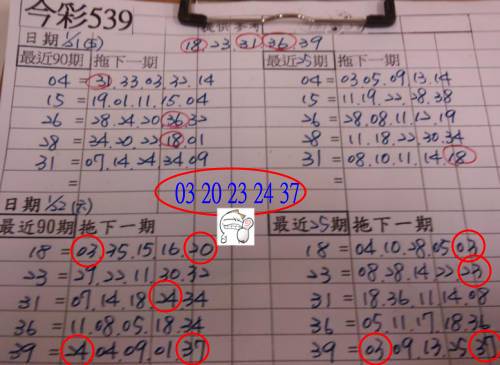 今彩539
日期 1/21(五) 18 23 31 36 39
最近90期 拖下一期 最近25期 拖下一期
04 = 31.33.03.32.14 04 = 03.05.09.13.14
15 = 19.01.11.15.04 15 = 11.19.22.28.38
26 = 28.24.20.36.32 26 = 28.08.11.12.19
28 = 34.20.22.18.01 28 = 11.18.22.30.34
31 = 07.14.24.34.09 31 = 08.10.11.14.18
= =
03 20 23 24 37
日期 1/22
最近90期 拖下一期 最近25期 拖下一期
18 = 03.35.15.16.20 18 = 04.10.28.05.03
23 = 29.22.11.30.32 23 = 08.28.14.22.23
31 = 07.14.18.24.34 31 = 18.36.11.14.08
36 = 11.08.05.18.34 36 = 05.11.17.18.36
39 = 24.04.09.01.37 39 = 03.09.13.25.37